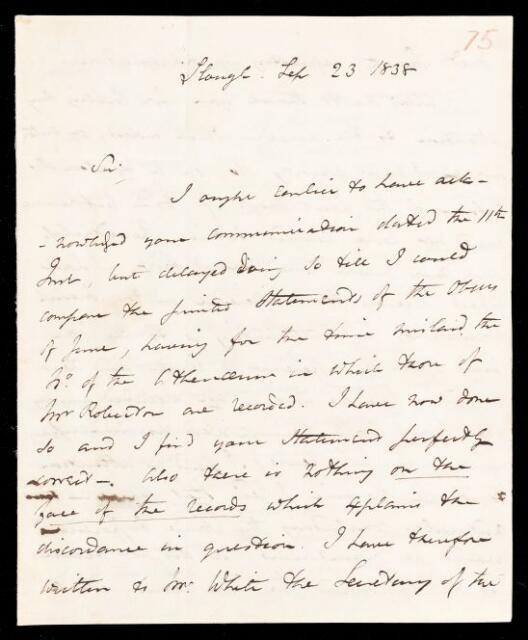 75
Slough. Sep 23 1838
Sir,
I ought earlier to have ack-
-nowledged your communication dated the 11th
Inst, but delayed doing so till I could
compare the printed Statements of the Obsns
of June, having for the time mislaid the
No. of the Athenaeum in which those of
Mr Robertson are recorded. I have now done
so and I find your Statement perfectly
correct -. Also there is nothing on the
face of the records which explains the
discordance in question. I have therefore
written to Mr. White the Secretary of the